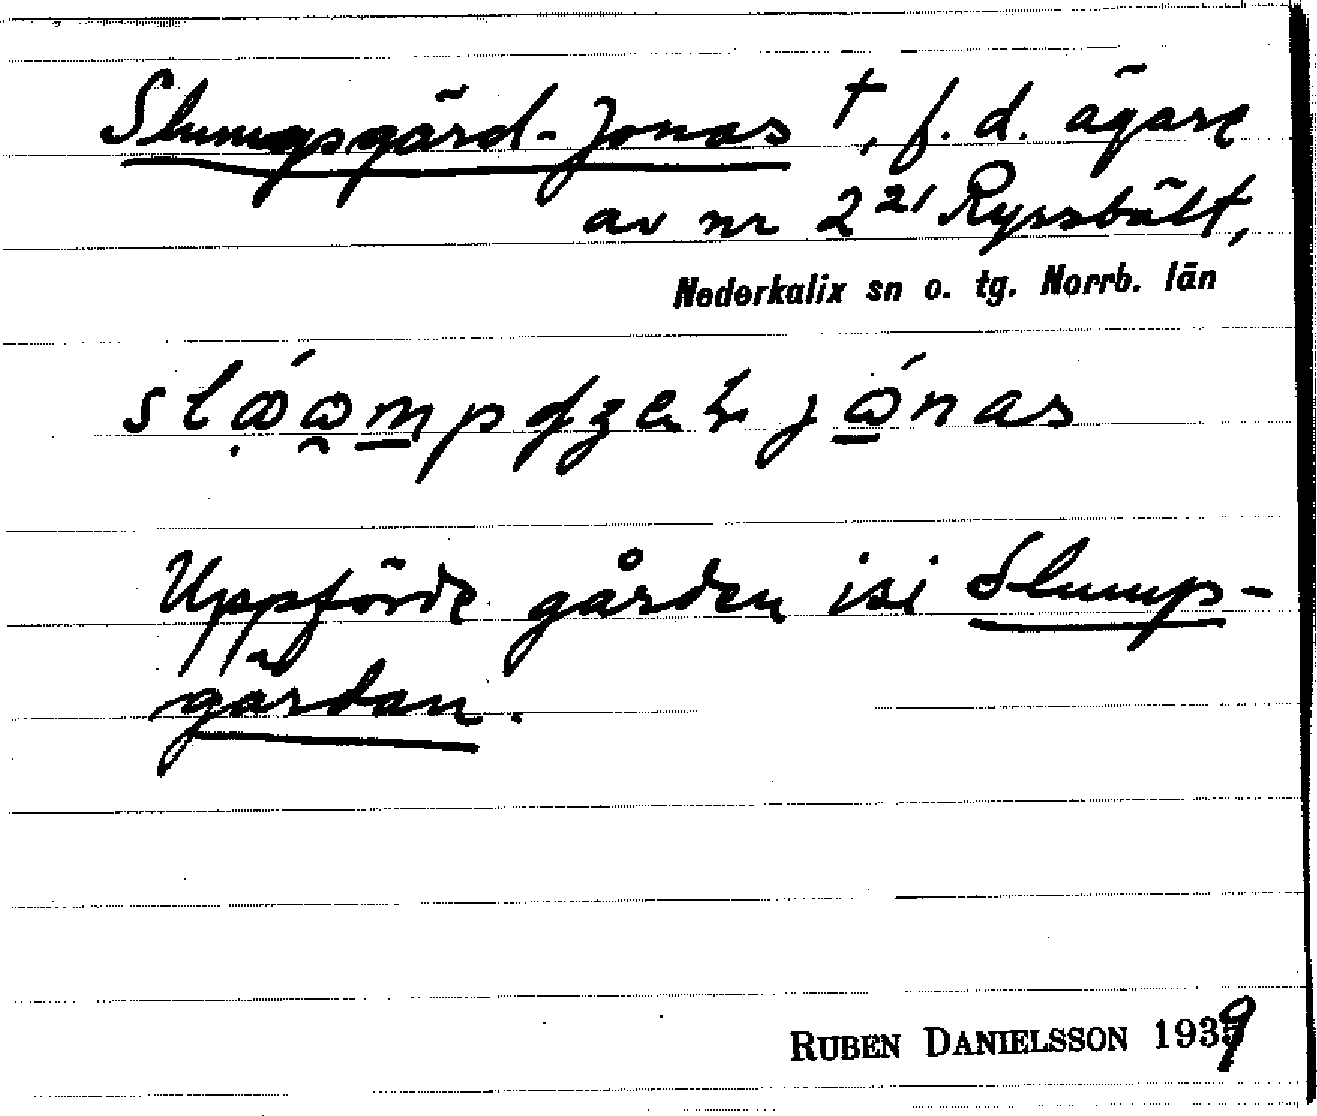 Slumpsgärd-Jonas †, f. d. ägare
av nr 2²¹ Ryssbält,
Nederkalix sn o. tg. Norrb. län
jɷ́nas
Uppförde gården isi Slump-
gärdan.
RUBEN DANIELSSON 1939